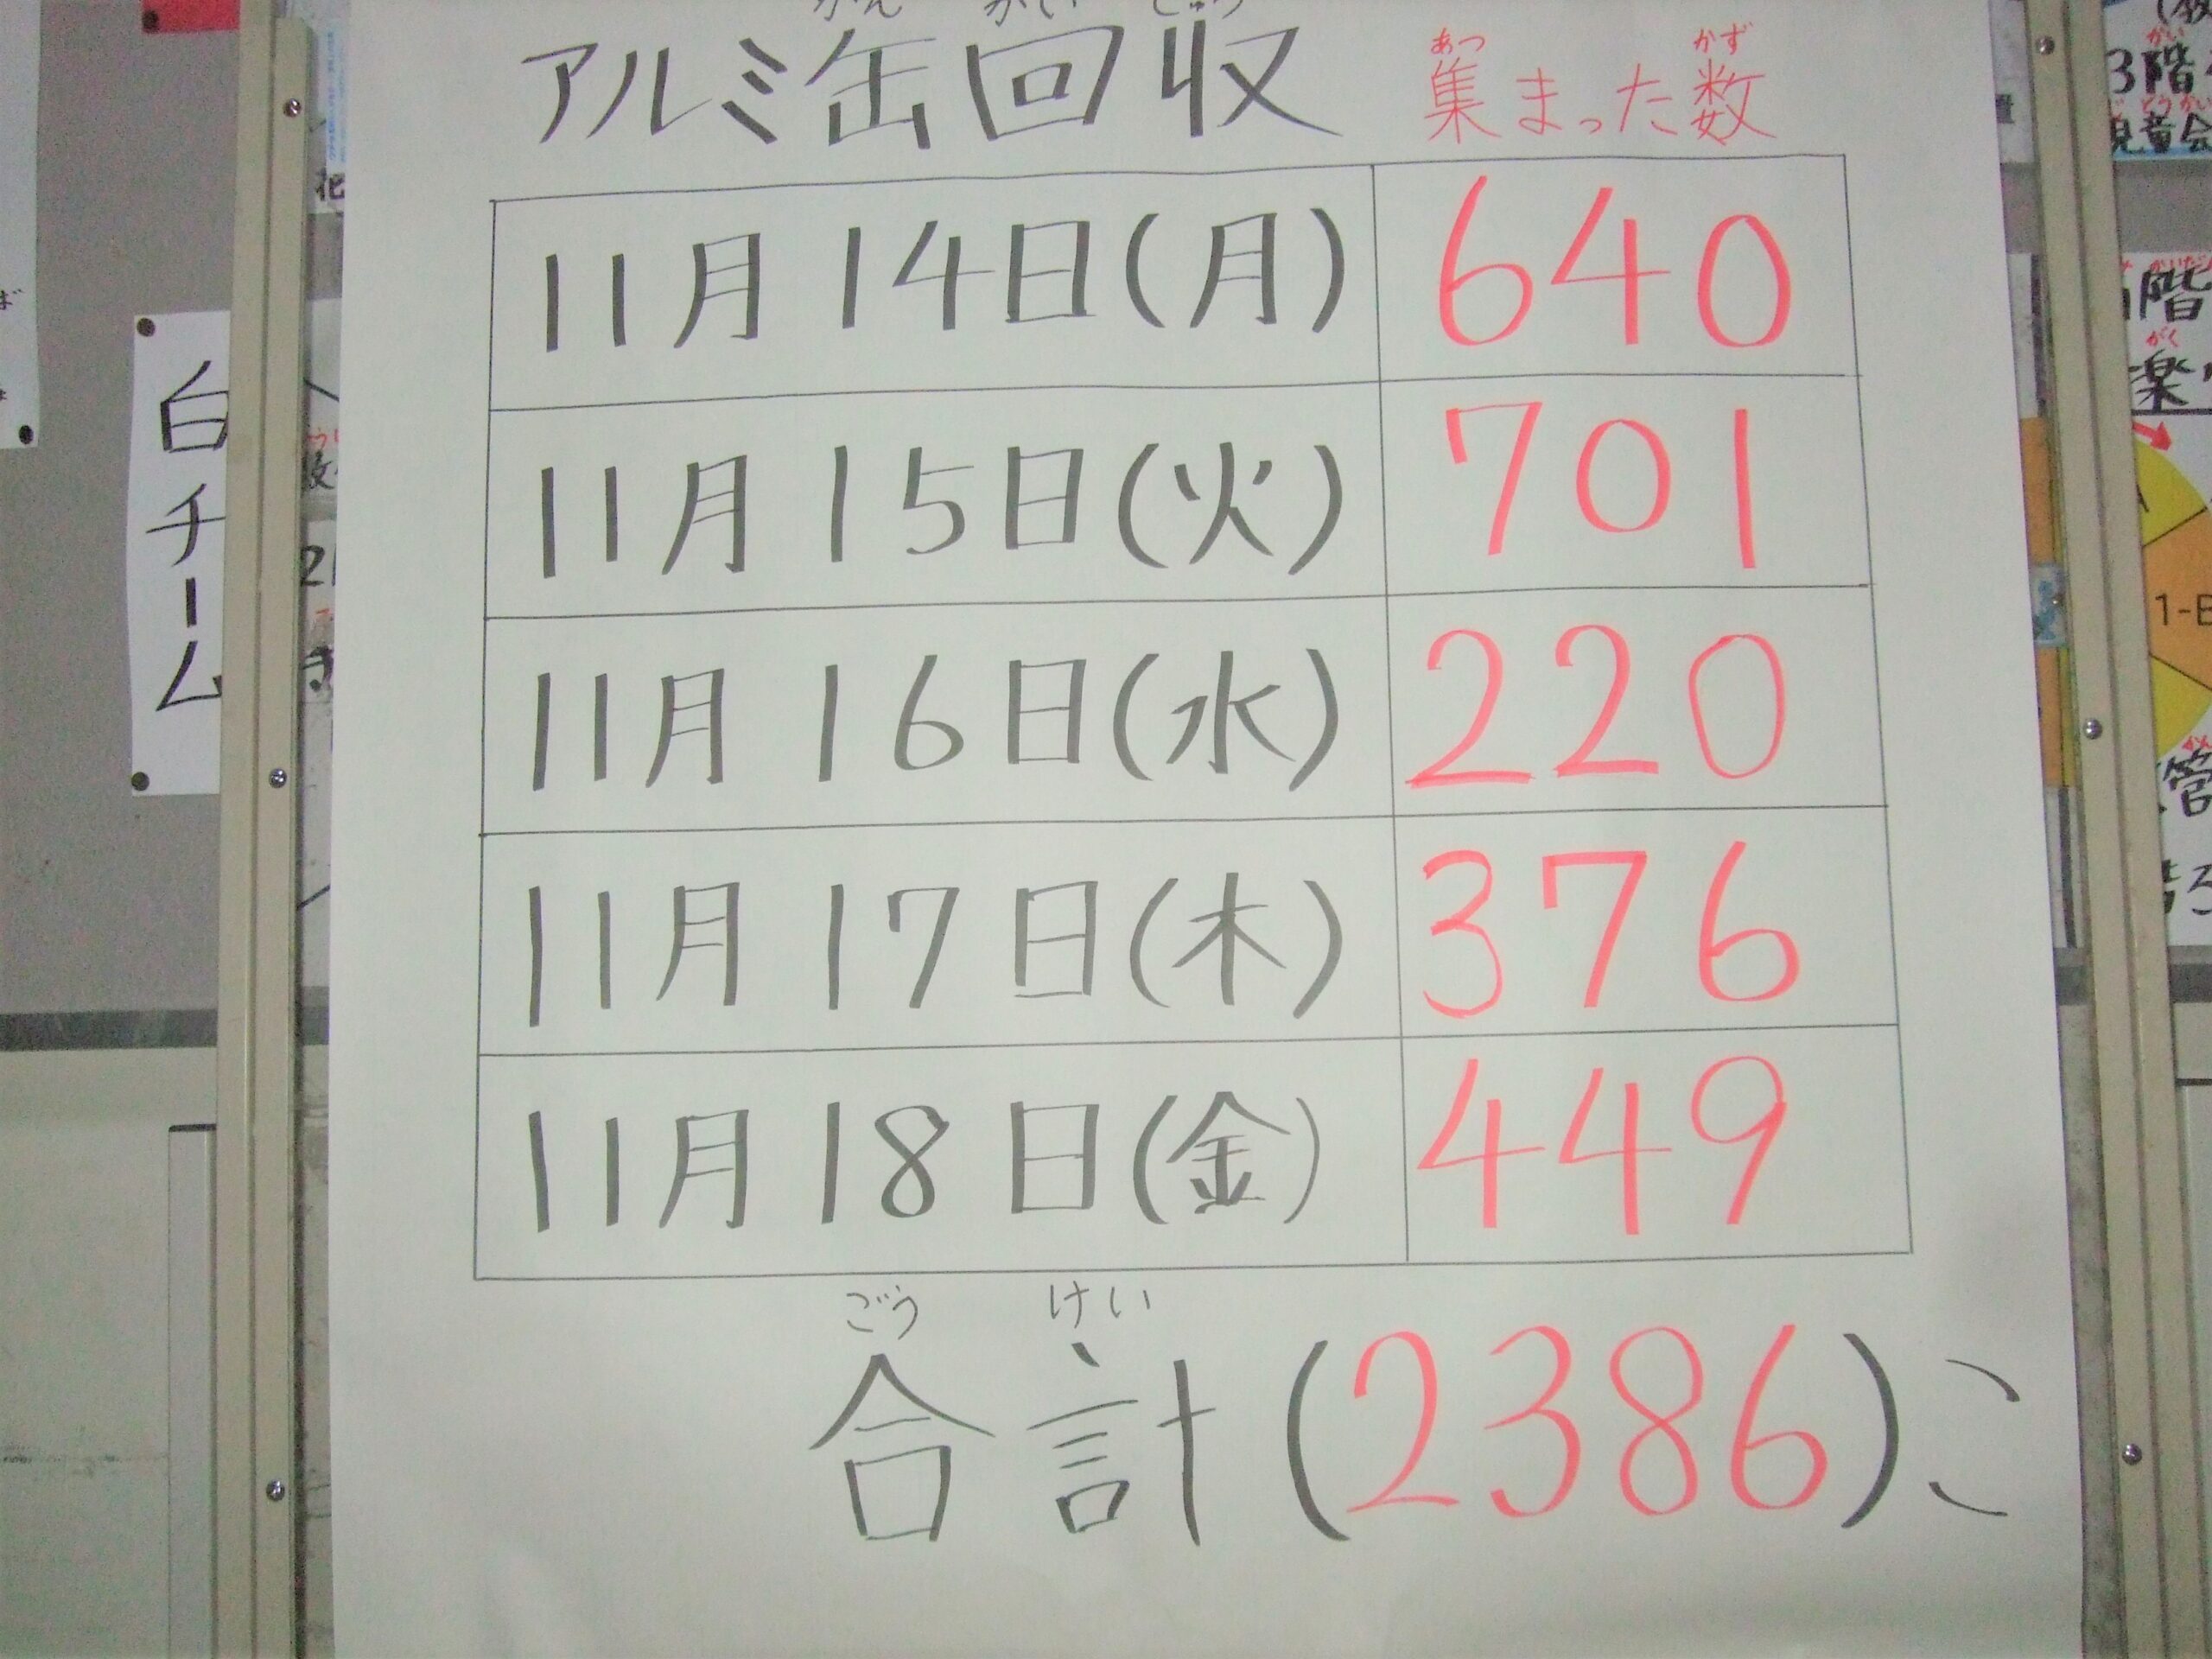 アルミ缶回収 集まった数
あつ かず
11月14日(月) 640
11月15日(火) 701
11月16日(水) 220
11月17日(木) 376
11月18日(金) 449
ごう けい
合計(2386)こ
白チーム
3階
階
がく
楽
1-B